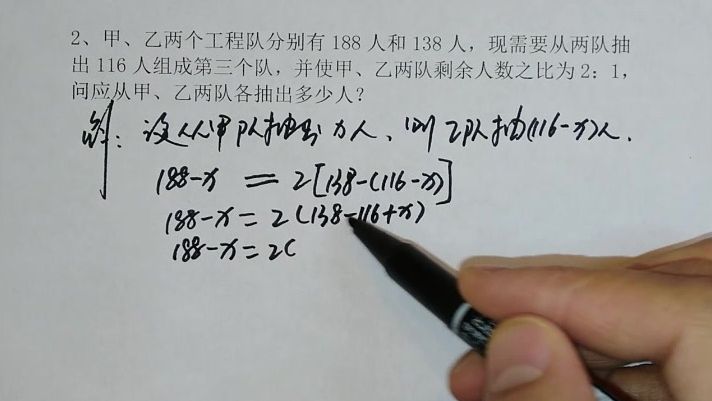 2、甲、乙两个工程队分别有 188 人和 138 人，现需要从两队抽
出 116 人组成第三个队，并使甲、乙两队剩余人数之比为 2：1，
问应从甲、乙两队各抽出多少人？
解：设从甲队抽出x人，则乙队抽(116-x)人.
188-x = 2[138-(116-x)]
188-x=2(138-116+x)
188-x=2(